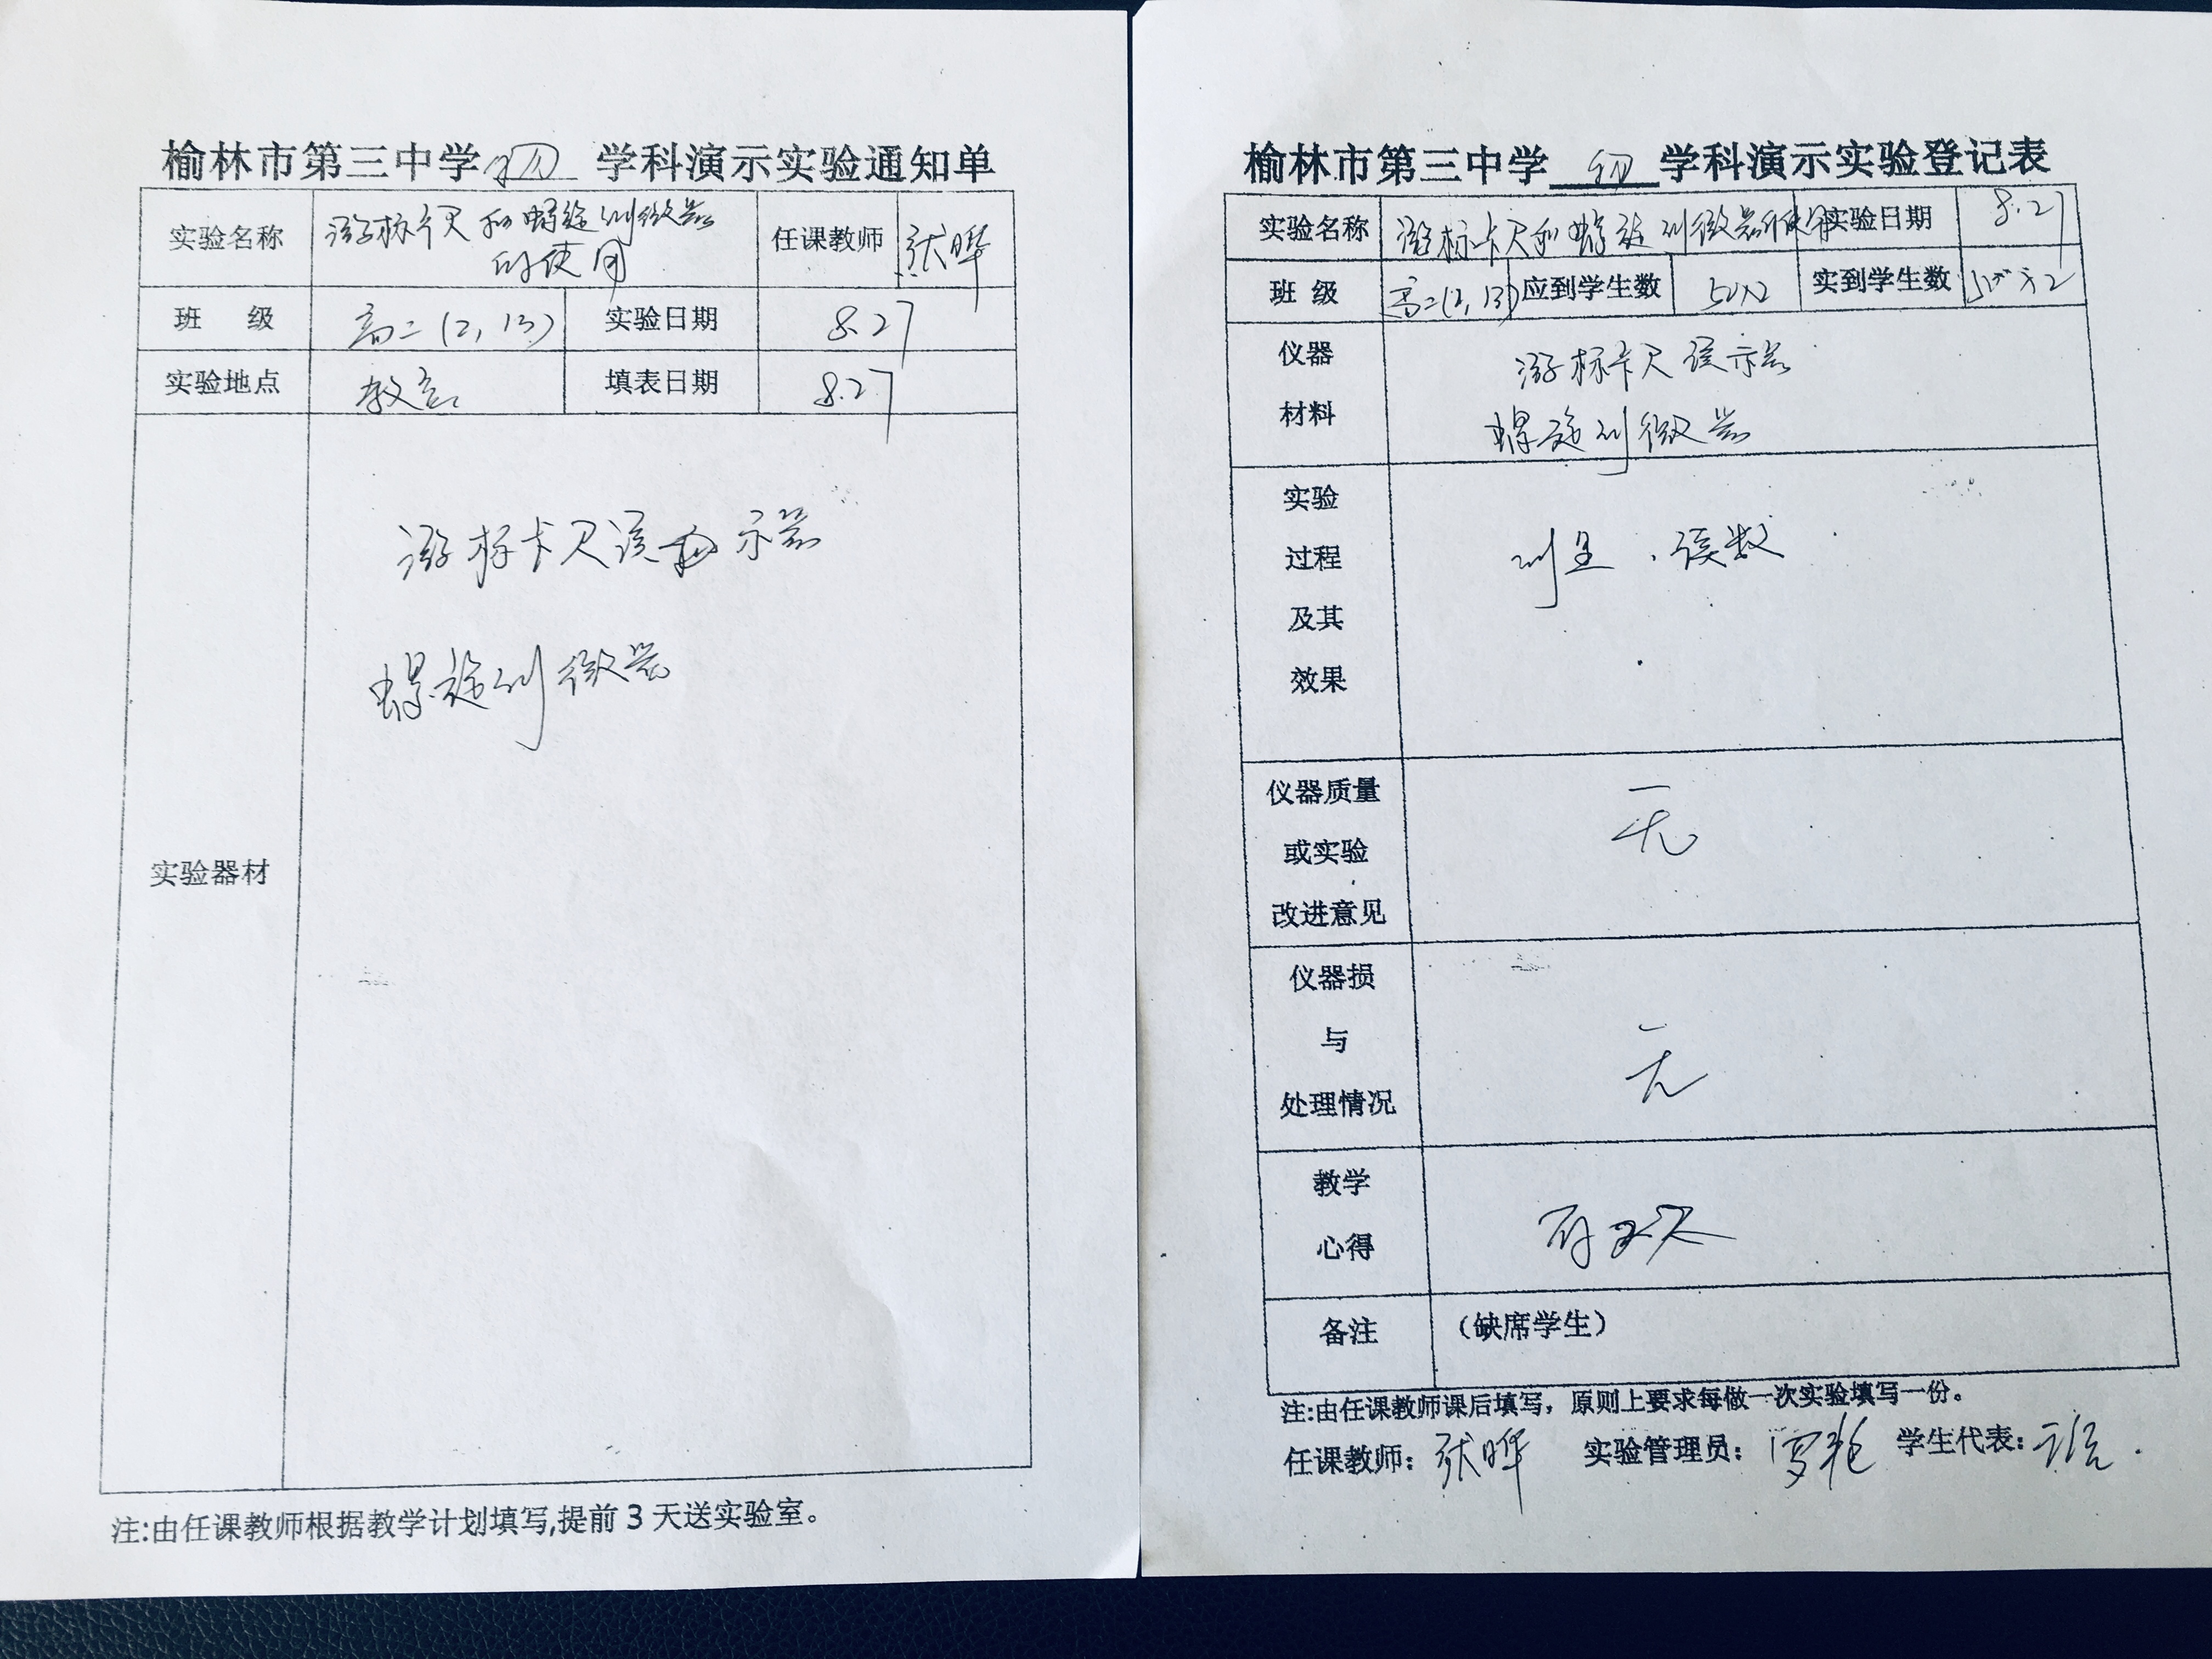 榆林市第三中学 物 学科演示实验通知单
实验名称 游标卡尺和螺旋测微器的使用 任课教师 张晔
班 级 高二(2,13) 实验日期 8.27
实验地点 教室 填表日期 8.27
实验器材
游标卡尺演示器
螺旋测微器
注:由任课教师根据教学计划填写,提前3天送实验室。
榆林市第三中学 物 学科演示实验登记表
实验名称 游标卡尺和螺旋测微器的使用 实验日期 8.27
班 级 高二(2,13) 应到学生数 50×2 实到学生数 50×2
仪器
材料
游标卡尺演示器
螺旋测微器
实验
过程
及其
效果
测量、读数
仪器质量
或实验
改进意见
无
仪器损
与
处理情况
无
教学
心得
备注 (缺席学生)
注:由任课教师课后填写,原则上要求每做一次实验填写一份。
任课教师: 张晔 实验管理员: 学生代表: